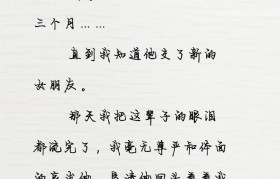 三个月……
直到我知道他交了新的
女朋友。
那天我把这辈子的眼泪
都流完了，我毫无尊严和体面